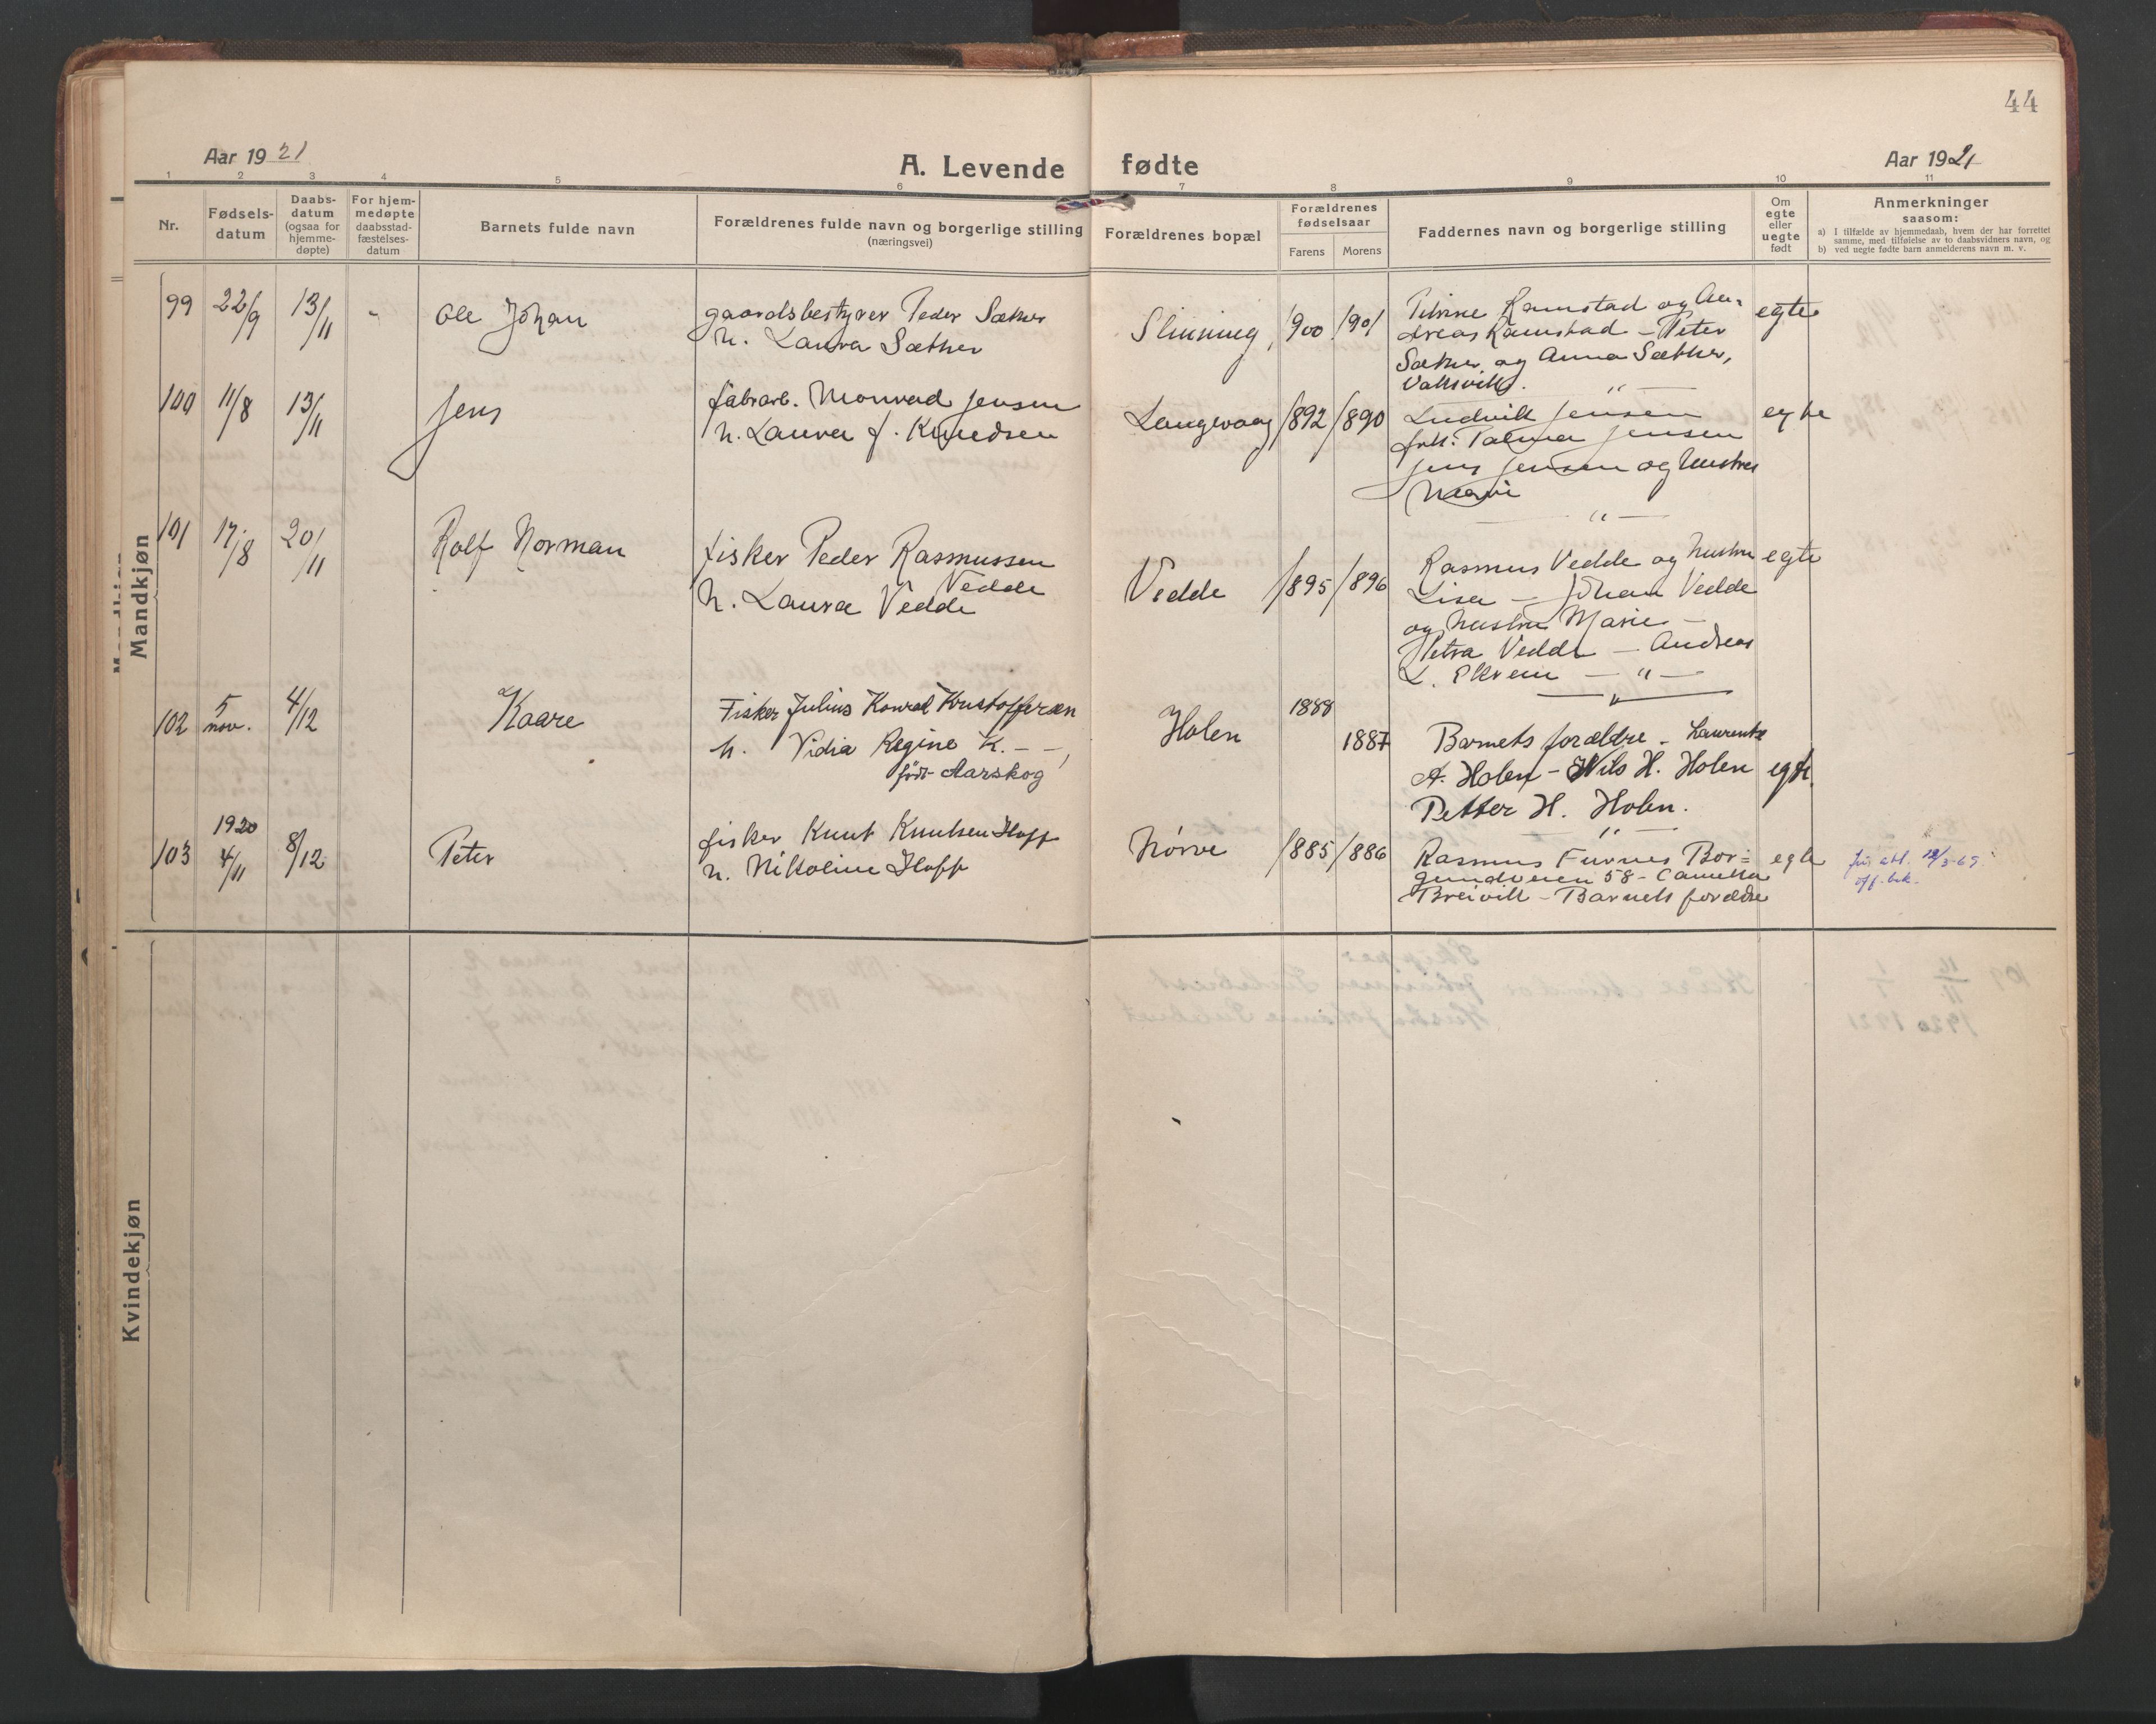 44
Aar 1921
A. Levende fødte
Aar 1921
1 2 3 4 5 6 7 8 9 10 11
Nr.
Fødsels-
datum
Daabs-
datum
(ogsaa for
hjemme-
døpte)
For hjem-
medøpte
daabsstad-
fæstelses-
datum
Barnets fulde navn
Forældrenes fulde navn og borgerlige stilling
(næringsvei)
Forældrenes bopæl
Forældrenes
fødselsaar
Farens Morens
Faddernes navn og borgerlige stilling
Om
egte
eller
uegte
født
Anmerkninger
saasom:
a) I tilfælde av hjemmedaab, hvem der har forrettet
samme, med tilføielse av to daabsvidners navn, og
b) ved uegte fødte barn anmelderens navn m. v.
Mandkjøn
99 22/9 13/11 - Ole Johan
gaardsbestyrer Peder Sæther
h. Laura Sæther
Slinning, 1900 1901
Ramstad og An-
dreas Ramstad - Peter
Sæther og Anna Sæther,
Valsvik.
egte
100 11/8 13/11 Jens
fabrarb. Monrad Jensen
h. Laura f. Knudsen
Langevaag 1892 1890
Ludvik Jensen
frk. Palma Jensen
Jens Jensen og hustru
Marie
egte
101 17/8 20/11 Rolf Norman
fisker Peder Rasmussen
Vedde
h. Laura Vedde
Vedde 1895 1896
Rasmus Vedde og hustru
Lisa - Johan Vedde
og hustru Marie -
Petra Vedde - Andreas
L. Ekrem - " -
egte
102 5 nov. 4/12 Kaare
Fisker Julius Konrad Kristoffersen
h. Vidia Regine K. - -,
født Aarskog
Holen 1888
1887
Barnets forældre - Laurentse
A. Holen - Nils H. Holen
Petter H. Holen.
egte
103 1920
4/11 8/12 Peter
fisker Knut Knutsen Hoff
h. Nikoline Hoff
Nørve 1885 1886
Rasmus Furnes Bor=
gundveien 58 - Camilla
Breivik - Barnets forældre
egte
12/3-69.
off. bek.
Kvindekjøn